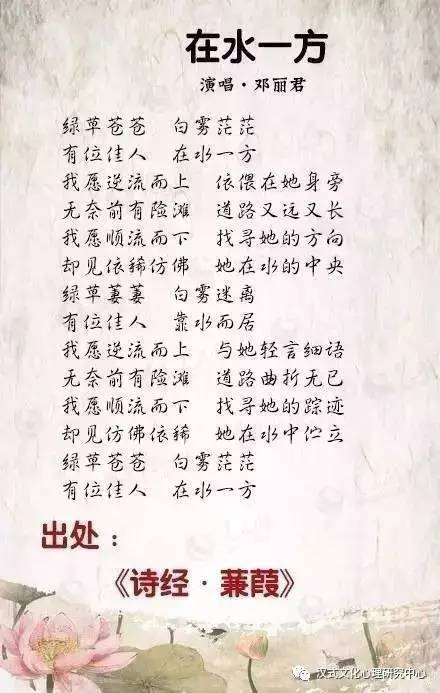 在水一方
演唱·邓丽君
绿草苍苍 白雾茫茫
有位佳人 在水一方
我愿逆流而上 依偎在她身旁
无奈前有险滩 道路又远又长
我愿顺流而下 找寻她的方向
却见依稀仿佛 她在水的中央
绿草萋萋 白雾迷离
有位佳人 靠水而居
我愿逆流而上 与她轻言细语
无奈前有险滩 道路曲折无已
我愿顺流而下 找寻她的踪迹
却见仿佛依稀 她在水中伫立
绿草苍苍 白雾茫茫
有位佳人 在水一方
出处：
《诗经·蒹葭》
汉式文化心理研究中心